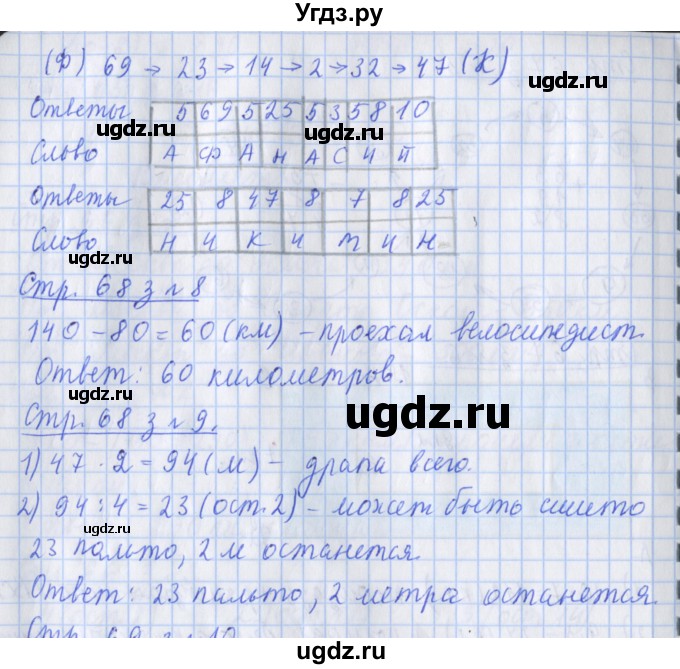 Угдз.ру
(Ф) 69 → 23 → 14 → 2 → 32 → 47 (К)
Ответы 5 69 5 25 5 35 8 10
ugdz.ru ugdz.ru
Слово А Ф А Н А С И П
Ответы 25 8 47 8 7 8 25
Слово Н И К И Т И Н
ugdz.ru
Стр. 68 з №8
ugdz.ru
140 - 80 = 60 (км) - проехал велосипедист.
Ответ: 60 километров.
ugdz.ru
Стр. 68 з №9.
1) 47 · 2 = 94 (м) - драпа всего.
2) 94 : 4 = 23 (ост. 2) - может быть сшито
ugdz.ru
23 пальто, 2 м останется.
Ответ: 23 пальто, 2 метра останется.
Стр. 69 з №10
ugdz.ru